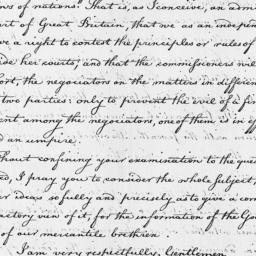 ws of nations. That is, as I conceive, an adm
rt of Great Britain, that we as an indepen
ve a right to contest the principles or rules of
ide her courts; and that the commissioners wil
ort, the negociators on the matters in differen
two parties: only to prevent the evil of a fin
ent among the negociators, one of them is in eff
d an umpire.
thout confining your examination to the ques
ed, I pray you to consider the whole subject,
r ideas so fully and precisely as to give a com
actory view of it, for the information of the Go
of our mercantile brethren.
I am very respectfully, Gentlemen